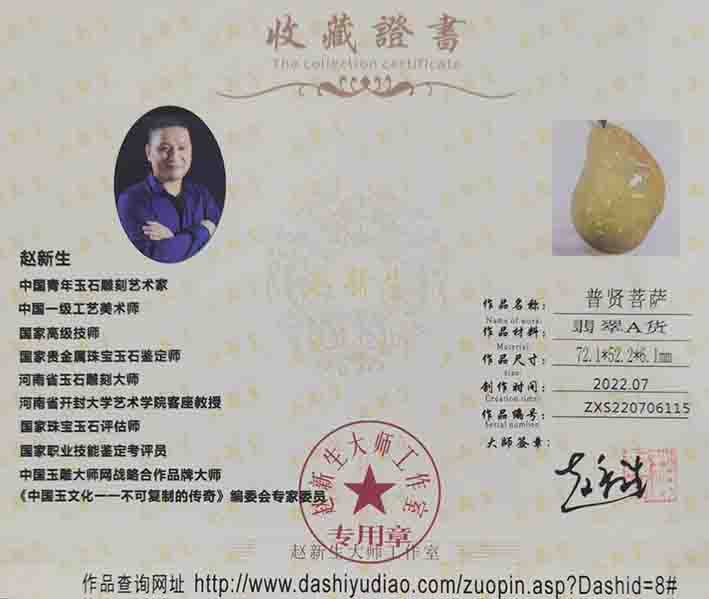 收藏證書
The collection certificate
赵新生
中国青年玉石雕刻艺术家
中国一级工艺美术师
国家高级技师
国家贵金属珠宝玉石鉴定师
河南省玉石雕刻大师
河南省开封大学艺术学院客座教授
国家珠宝玉石评估师
国家职业技能鉴定考评员
中国玉雕大师网战略合作品牌大师
《中国玉文化一一不可复制的传奇》编委会专家委员
作品名称: 普贤菩萨
Name of work:
作品材料: 翡翠A货
Material:
作品尺寸: 72.1*52.2*6.1mm
size:
创作时间: 2022.07
Creation time:
作品编号: ZXS220706115
Serial number:
大师签章:
赵新生
赵新生大师工作室
专用章
赵新生大师工作室
作品查询网址 http://www.dashiyudiao.com/zuopin.asp?Dashid=8#